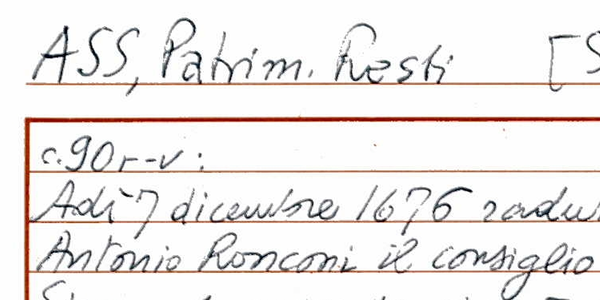 ASS, Patrim. Resti [S
c. 90 r-v:
Adì 7 dicembre 1676 radu
Antonio Ronconi il consiglio